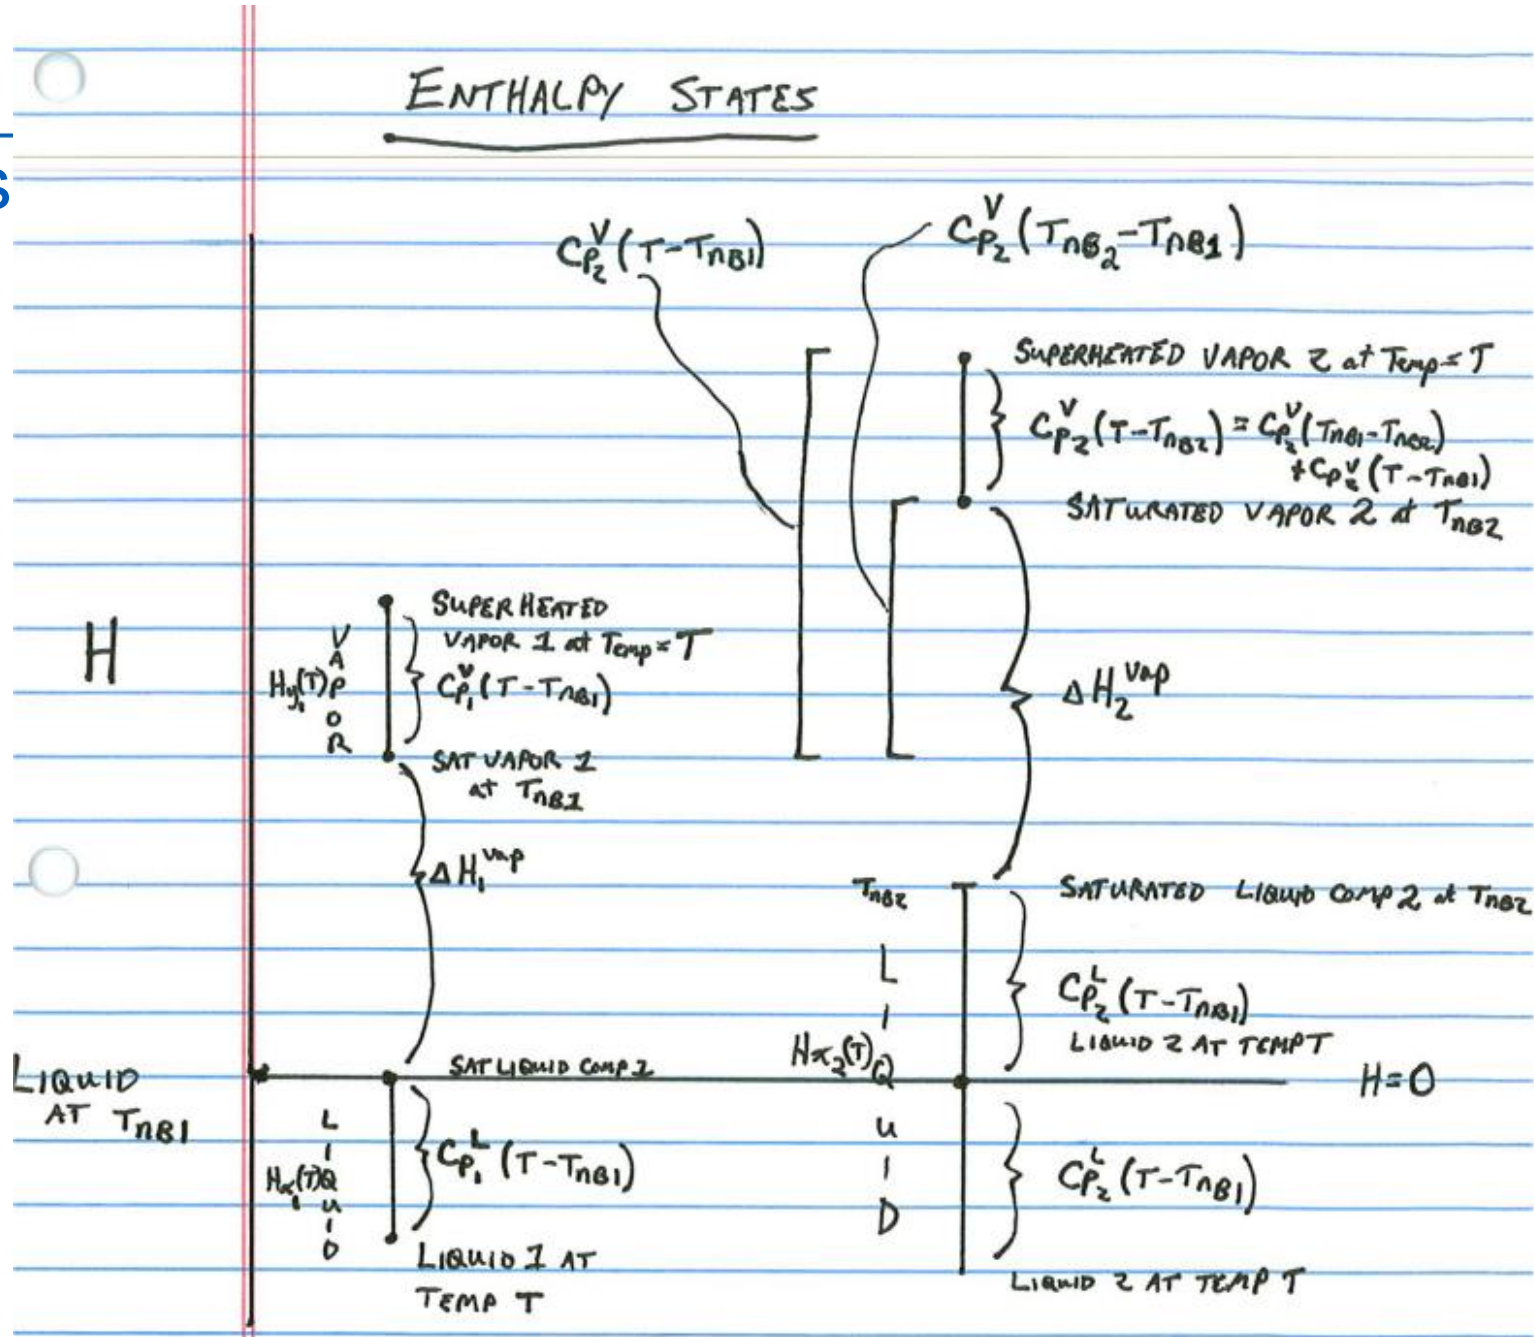 ENTHALPY STATES
s
C_P2^V (T-TnB1)
C_P2^V (TnB2-TnB1)
SUPERHEATED VAPOR 2 at Temp = T
C_P2^V (T-TnB2) = C_P2^V (TnB1-TnB2)
+ C_P2^V (T-TnB1)
SATURATED VAPOR 2 at TnB2
SUPERHEATED
VAPOR 1 at Temp = T
H
VAPOR
Hy1(T)
C_P1^V (T-TnB1)
SAT VAPOR 1
at TnB1
ΔH2^vap
ΔH1^vap
TnB2
SATURATED LIQUID COMP 2 at TnB2
C_P2^L (T-TnB1)
LIQUID 2 AT TEMP T
LIQUID
Hx2(T)
SAT LIQUID COMP 1
H=0
LIQUID
AT TnB1
LIQUID
Hx1(T)
C_P1^L (T-TnB1)
C_P2^L (T-TnB1)
LIQUID 1 AT
TEMP T
LIQUID 2 AT TEMP T